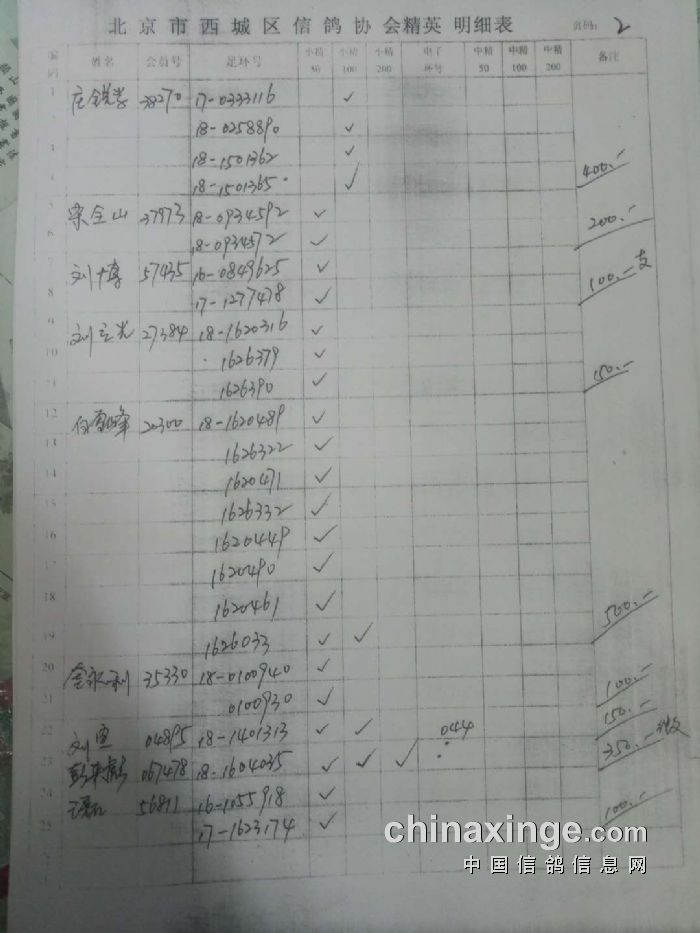 北京市西城区信鸽协会精英 明细表 页码: 2
编码 姓名 会员号 足环号 小精50 小精100 小精200 电子环号 中精50 中精100 中精200 备注
38270 17-0333116 ✓
18-0258890 ✓
18-1501362 ✓
18-1501365 ✓ 400.-
5 宋全山 37973 18-0934592 ✓
6 18-0934572 ✓ 200.-
7 57435 16-0849625 ✓
8 17-1277478 ✓ 100.-支
9 刘立光 27384 18-1620316 ✓
10 1626379 ✓
11 1626390 ✓ 150.-
12 20300 18-1620489 ✓
13 1626322 ✓
14 1620471 ✓
15 1626332 ✓
16 1620449 ✓
17 1620490 ✓
18 1620461 ✓
19 1626033 ✓ ✓ 500.-
20 金永利 35330 18-0100940 ✓
21 0100930 ✓ 100.-
22 刘 04895 18-1401313 ✓ ✓ 044 150.-
23 067478 18-1604035 ✓ ✓ ✓ 350.-
24 56811 16-1055918 ✓
25 17-1623174 ✓ 100.-
chinaxinge.com
中国信鸽信息网